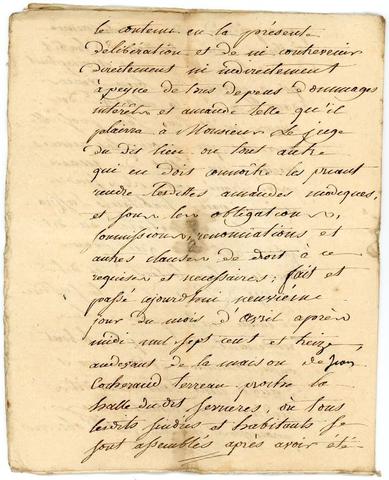 le contenu en la présente
délibération et de ni contrevenir
directement ni indirectement
à peyne de tous depens dommages
intérêts et amande telle qu'il
plairra à Monsieur Le juge
du dit lieu ou tous autre
qui en doit connoître les priant
rendre lesdittes amandes modiques,
et sous les obligations,
soumissions, renonciations et
autres clauses de droit à ce
requises et necessaires; fait et
passé aujourdhui neuvième
jour du mois d'avril après
midi mil sept cent et
audevant de la maison de Jean
Cacheraud terreau proche la
halle du dit Serrières, où tous
lesdits sindics et habitants se
sont assemblés après avoir été